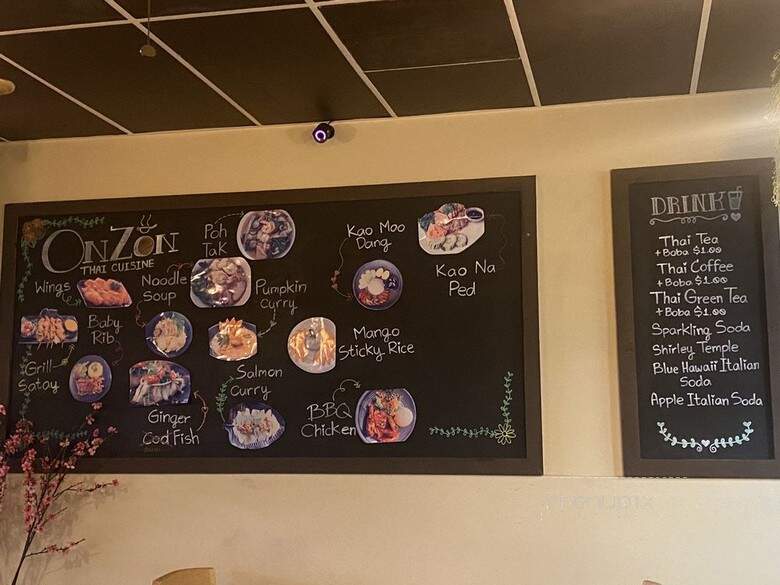 OnZon
THAI CUISINE
Poh
Tak
Kao Moo
Dang
Kao Na
Ped
Wings
Noodle
Soup
Pumpkin
Curry
Baby
Rib
Mango
Sticky Rice
Grill
Satay
Salmon
Curry
Ginger
Cod Fish
BBQ
Chicken
DRINK
Thai Tea
+ Boba $1.00
Thai Coffee
+ Boba $1.00
Thai Green Tea
+ Boba $1.00
Sparkling Soda
Shirley Temple
Blue Hawaii Italian
Soda
Apple Italian Soda